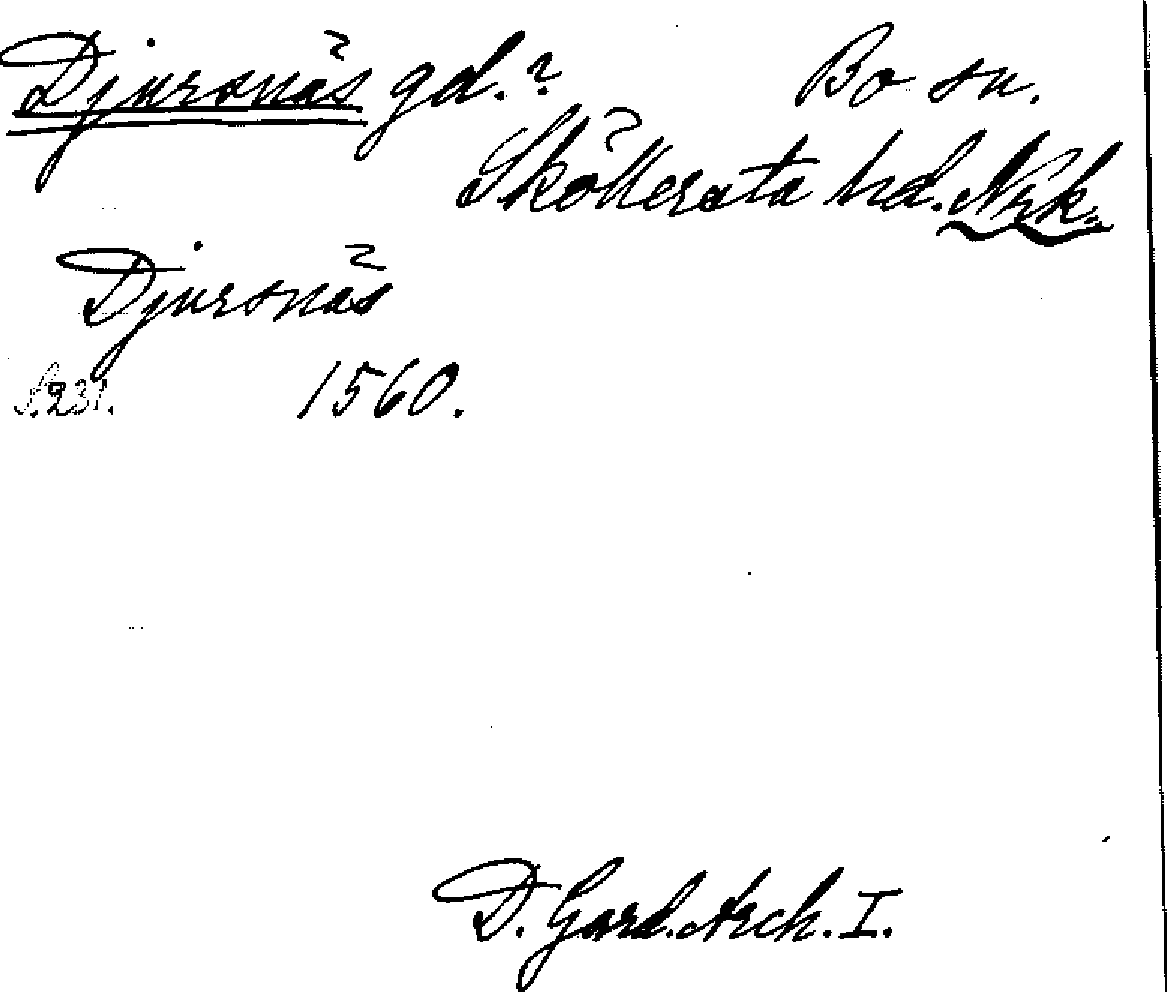 Djursnäs gd.? Bo sn.
Sköllersta hd. Nrk.
Djursnäs
S. 231. 1560.
D. Gard. Arch. I.